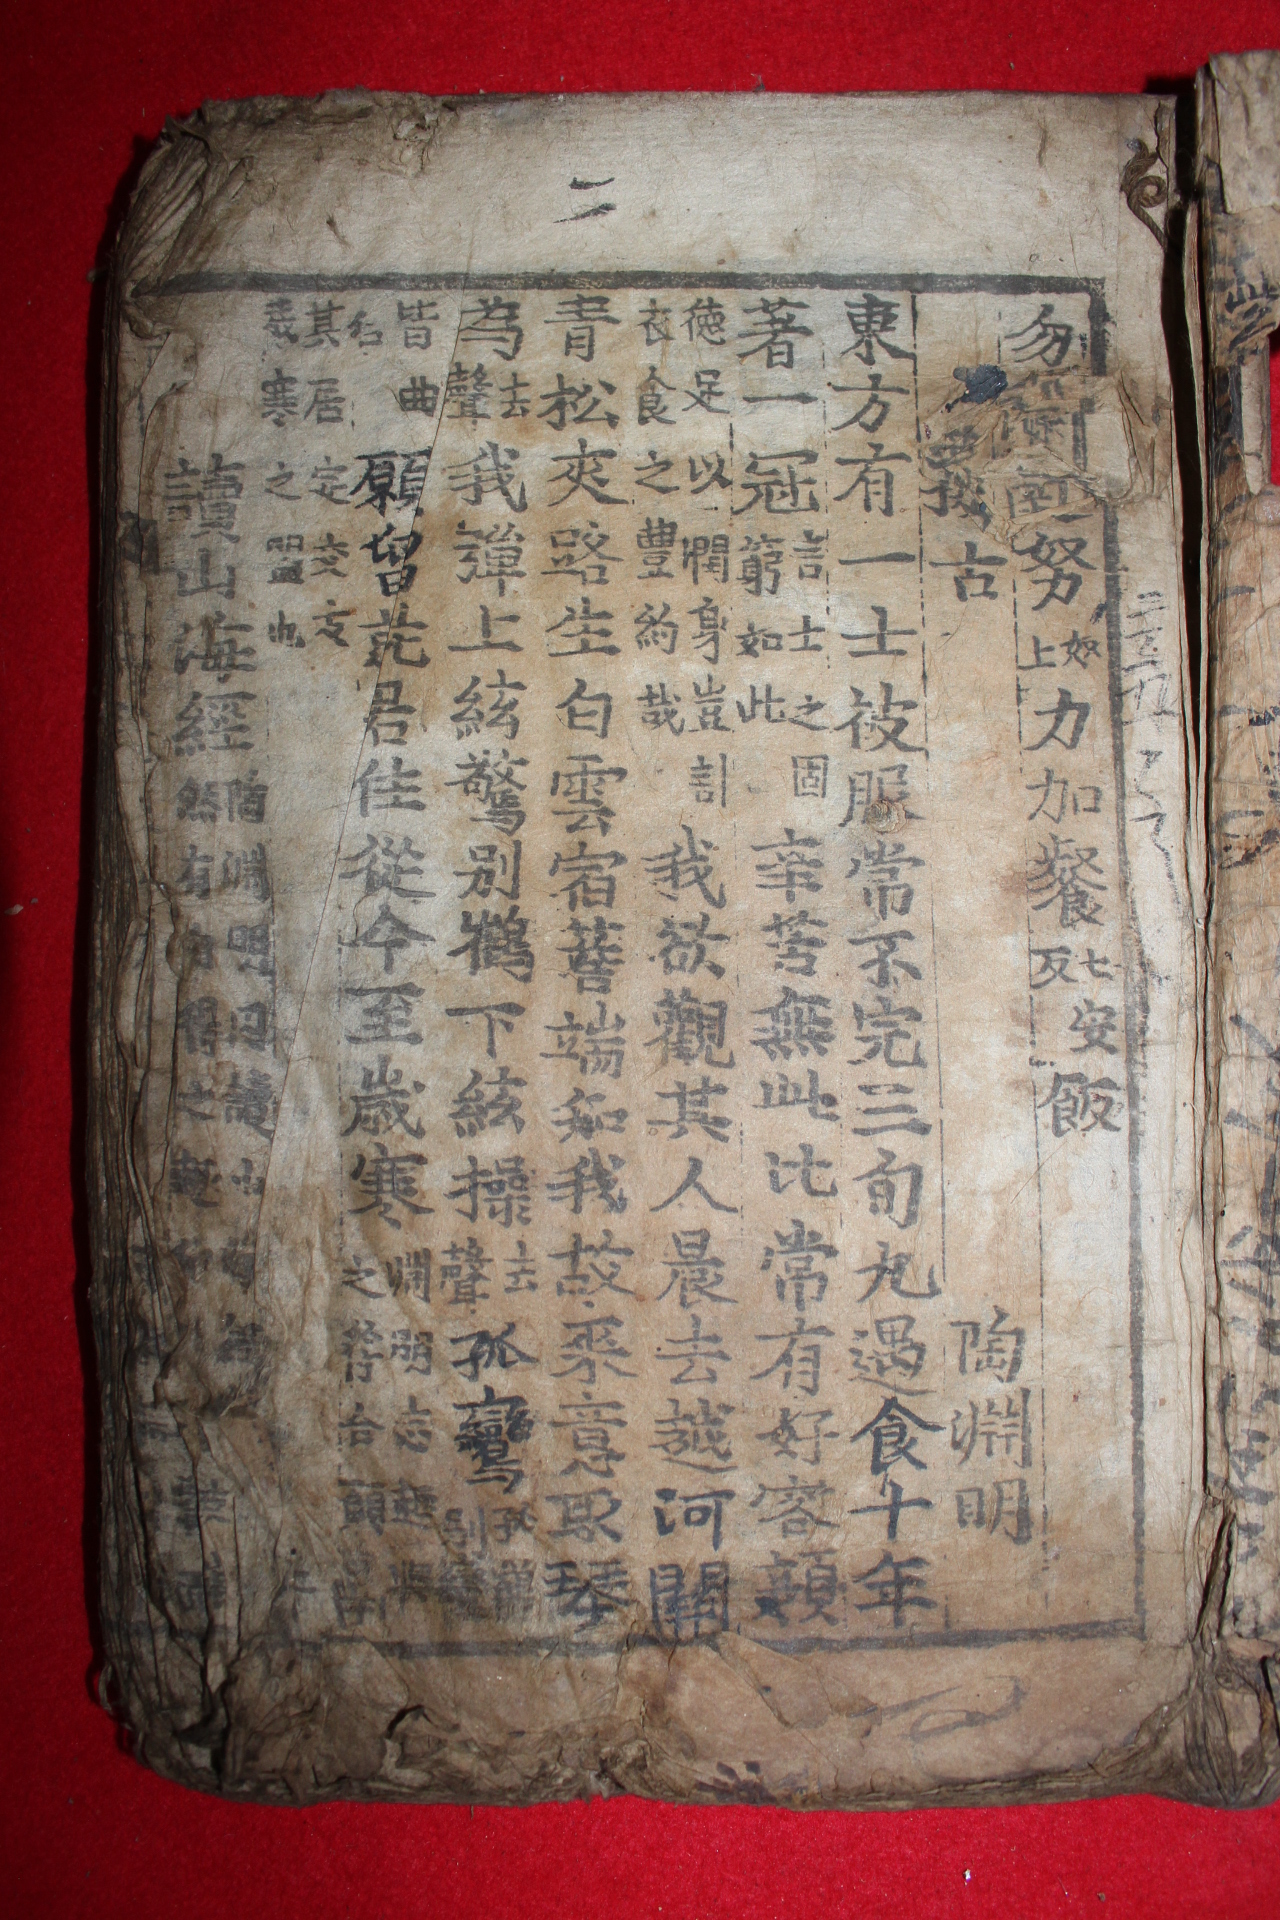 勿努如上力加餐七安反飯
擬古　陶淵明
東方有一士被服常不完三旬九遇食十年
著一冠言士之固窮如此辛苦無此比常有好容顔
德足以潤身豈計衣食之豊約哉我欲觀其人晨去越河關
青松夾路生白雲宿簷端知我故來意取琴
為去聲我彈上絃驚別鶴下絃操去聲孤鸞孤鸞別鶴
皆曲名願留就君住從今至歲寒淵明志趣與之符合願
其居定交寒之盟也
讀山海經陶淵明因讀山然有自得之趣
二